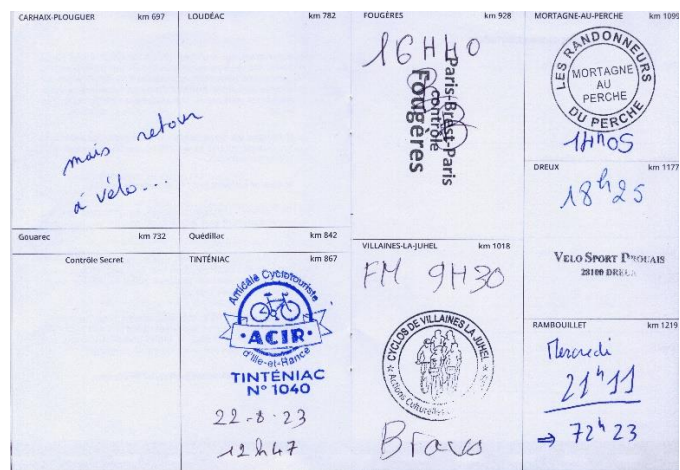 CARHAIX-PLOUGUER km 697
mais retour
à vélo...
Gouarec km 732
Contrôle Secret
LOUDÉAC km 782
Quédillac km 842
TINTÉNIAC km 867
Amicale Cyclotouriste
ACIR
d'Ille-et-Rance
TINTÉNIAC
N° 1040
22-8-23
12h47
FOUGÈRES km 928
16H40
Paris-Brest-Paris
contrôle
Fougères
VILLAINES-LA-JUHEL km 1018
FM 9H30
CYCLOS DE VILLAINES LA JUHEL
Actions Culturelles
Bravo
MORTAGNE-AU-PERCHE km 1099
LES RANDONNEURS
MORTAGNE
AU
PERCHE
DU PERCHE
14h05
DREUX km 1177
18h25
VELO SPORT DROUAIS
28100 DREUX
RAMBOUILLET km 1219
Mercredi
21h11
⇒ 72h23